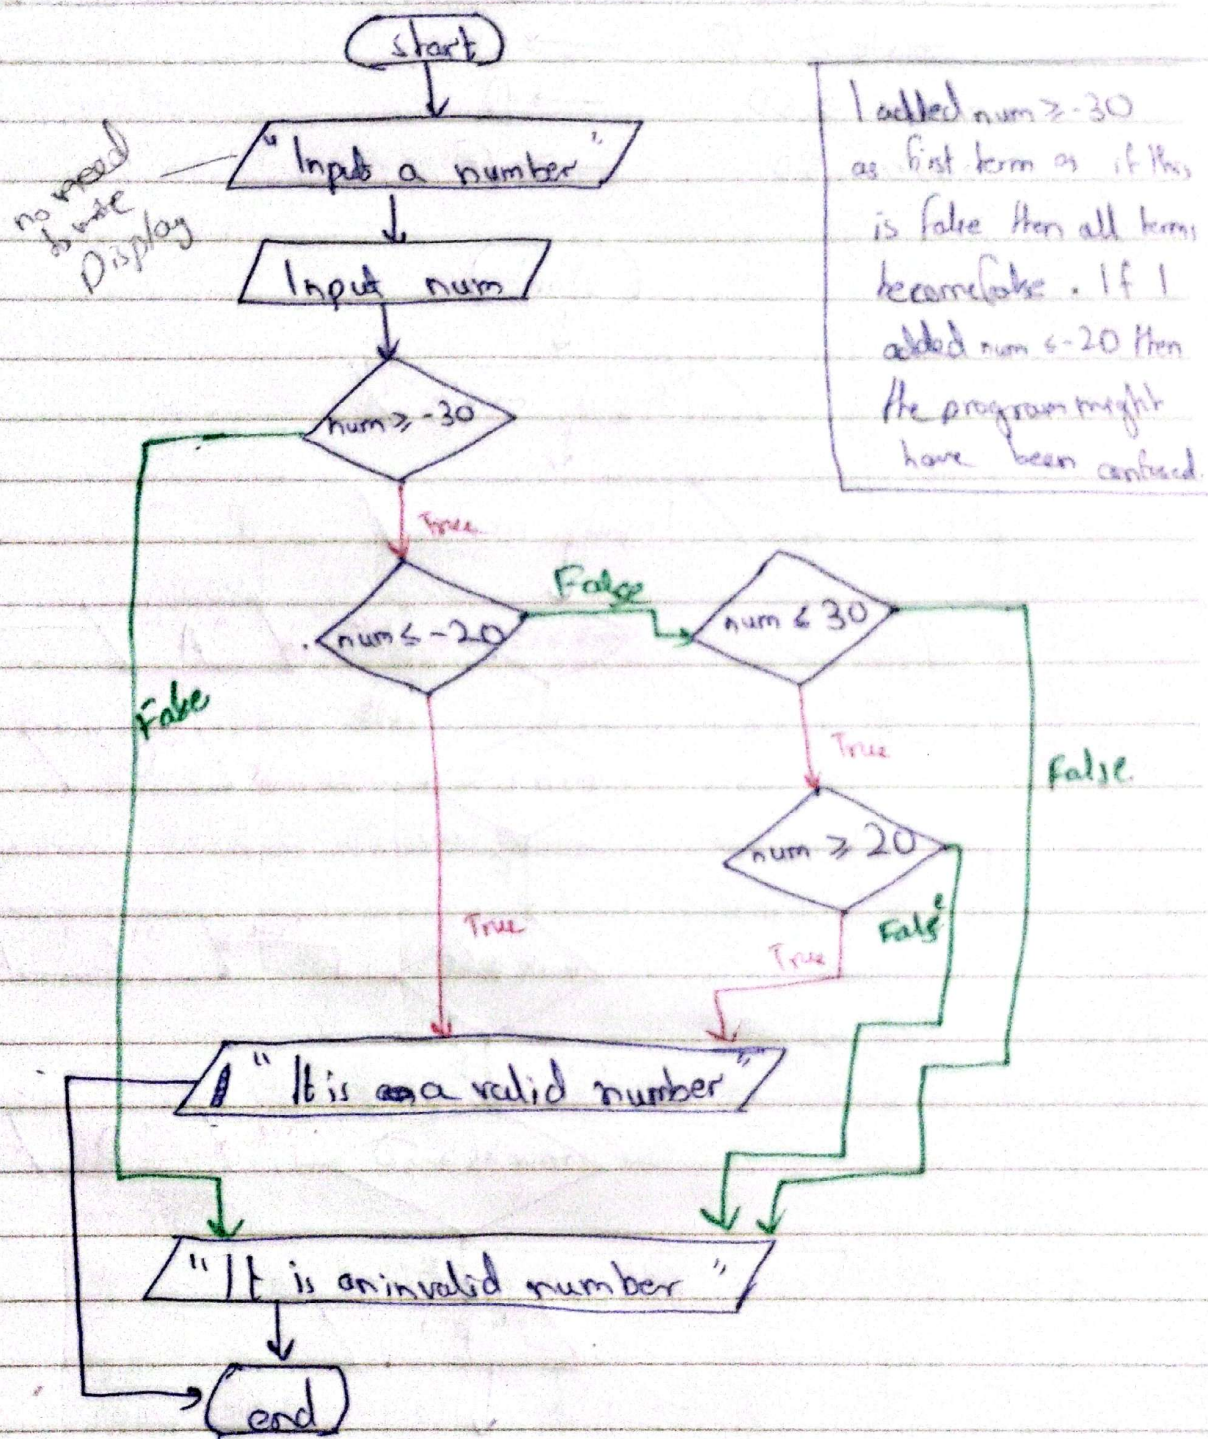 start
"Input a number"
no need
to write
Display
Input num
I added num ≥ -30
as first term as if this
is false then all terms
become false. If I
added num ≤ -20 then
the program might
have been confused.
num ≥ -30
True
False
num ≤ -20
False
num ≤ 30
False
True
False.
num ≥ 20
True
False
True
"It is a valid number"
"It is an invalid number"
end